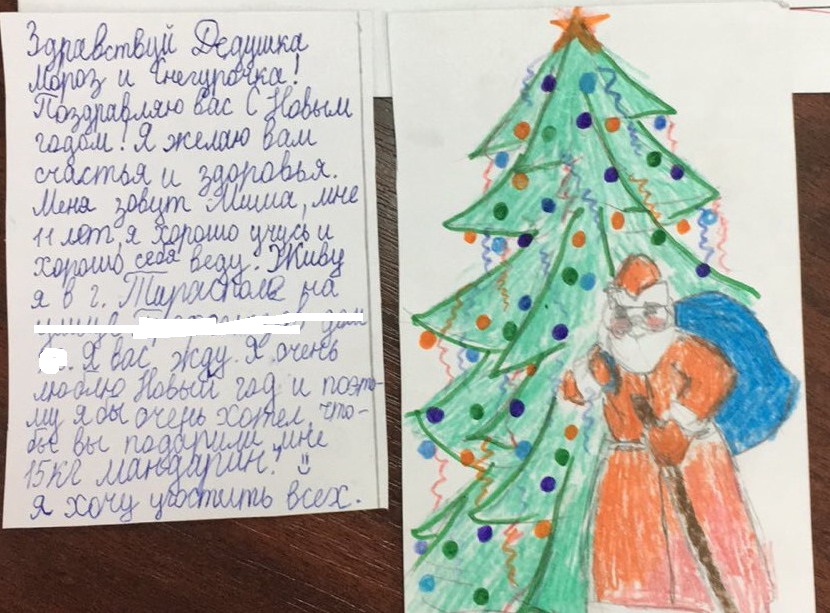 Здравствуй Дедушка
Мороз и Снегурочка!
Поздравляю вас С Новым
годом! Я желаю вам
счастья и здоровья.
Меня зовут Миша, мне
11 лет, я хорошо учусь и
хорошо себя веду. Живу
я в г. Тирасполе на
улице дом
. Я вас жду. Я очень
люблю Новый год и поэто-
му я бы очень хотел, что-
бы вы подарили мне
15кг мандарин!
Я хочу угостить всех.